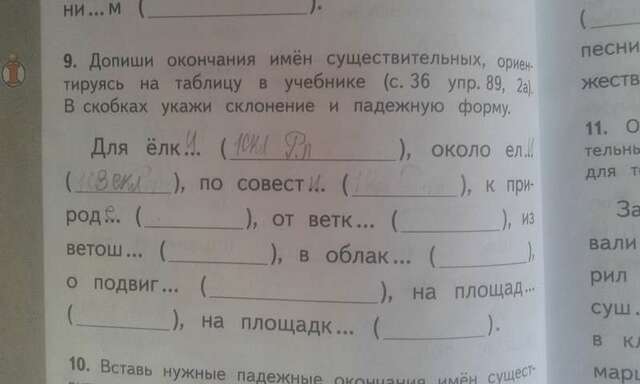 ни... м (              ).
9. Допиши окончания имён существительных, ориен-
тируясь на таблицу в учебнике (с. 36 упр. 89, 2а).
В скобках укажи склонение и падежную форму.
Для ёлки... (1скл Р.п), около ел..и
(3скл), по совест и.. (              ), к при-
роде... (              ), от ветк... (              ), из
ветош... (              ), в облак... (              ),
о подвиг... (              ), на площад...
(              ), на площадк... (              ).
10. Вставь нужные падежные окончания имён сущест-
(
песни
жеств
11. О
тельны
для т
За
вали
рил
суш.
в кл
марш